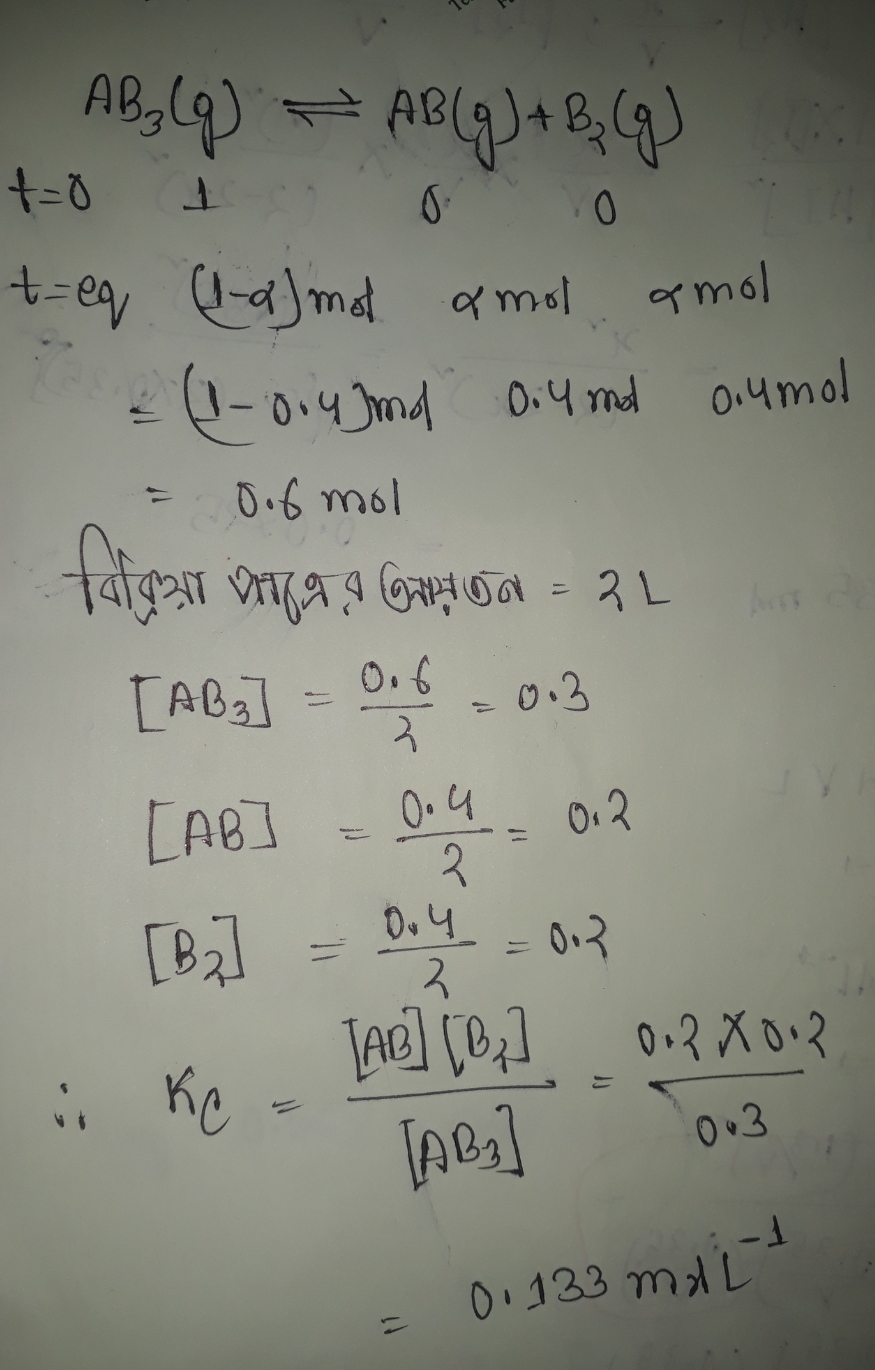 AB₃(g) ⇌ AB(g) + B₂(g)
t=0 1 0 0
t=eq (1-α)mol α mol α mol
= (1-0.4)mol 0.4 mol 0.4mol
= 0.6 mol
বিক্রিয়া পাত্রের আয়তন = 2 L
[AB₃] = 0.6/2 = 0.3
[AB] = 0.4/2 = 0.2
[B₂] = 0.4/2 = 0.2
∴ Kc = [AB][B₂]/[AB₃] = 0.2 X 0.2/0.3
= 0.133 molL⁻¹